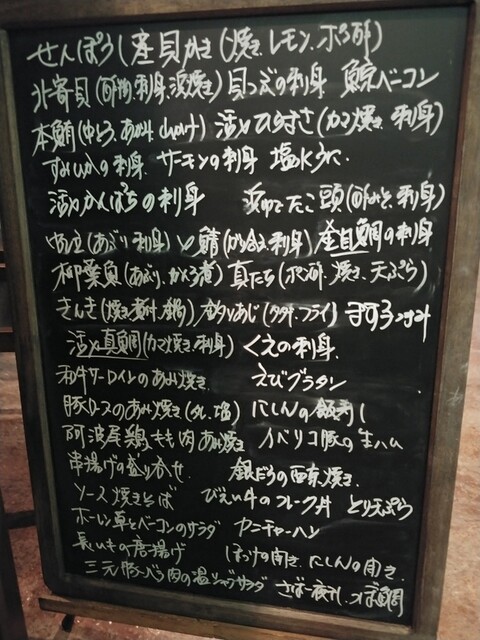 せんぽうし産貝かき(焼き.レモン.ポン酢)
北寄貝(酢物.刺身.浜焼き) 貝つぶの刺身 鯨ベーコン
本鮪(中とろ.あかみ.山かけ) 活〆ひらまさ(カマ焼き.刺身)
すみいかの刺身. サーモンの刺身 塩水うに
活〆かんぱちの刺身 浜ゆでたこ頭(酢みそ.刺身)
帆立(あぶり.刺身) 〆鯖(刺身) 金目鯛の刺身
柳葉魚(あぶり.かんろ煮) 真たち(ポン酢.焼き.天ぷら)
きんき(焼き.煮付.) 釣りあじ(タタキ.フライ) まぐろ
活〆真鯛(カマ焼き.刺身) くえの刺身.
和牛サーロインのあみ焼き えびグラタン
豚ロースのあみ焼き(タレ.塩) にしんの飯寿し
阿波尾鶏もも肉あみ焼き イベリコ豚の生ハム
串揚げの盛り合せ 銀だらの西京焼き.
ソース焼きそば びえい牛のフレーク丼 とり天ぷら
ホーレン草とベーコンのサラダ カニチャーハン
長いもの唐揚げ ほっけの開き.にしんの開き.
三元豚バラ肉の温シャブサラダ さば一夜干し.つぼ鯛